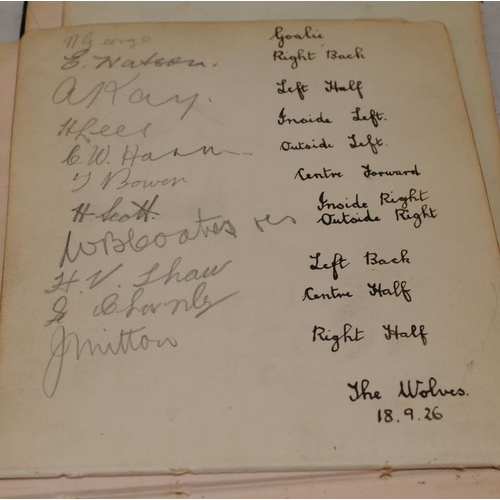 N George Goalie
E. Watson. Right Back
A Kay. Left Half
H Lees Inside Left.
C. W. Outside Left.
T Bowen Centre Forward
H Scott. Inside Right
W B Coates res Outside Right
H. V. Shaw Left Back
Centre Half
J Mitton Right Half
The Wolves.
18.9.26